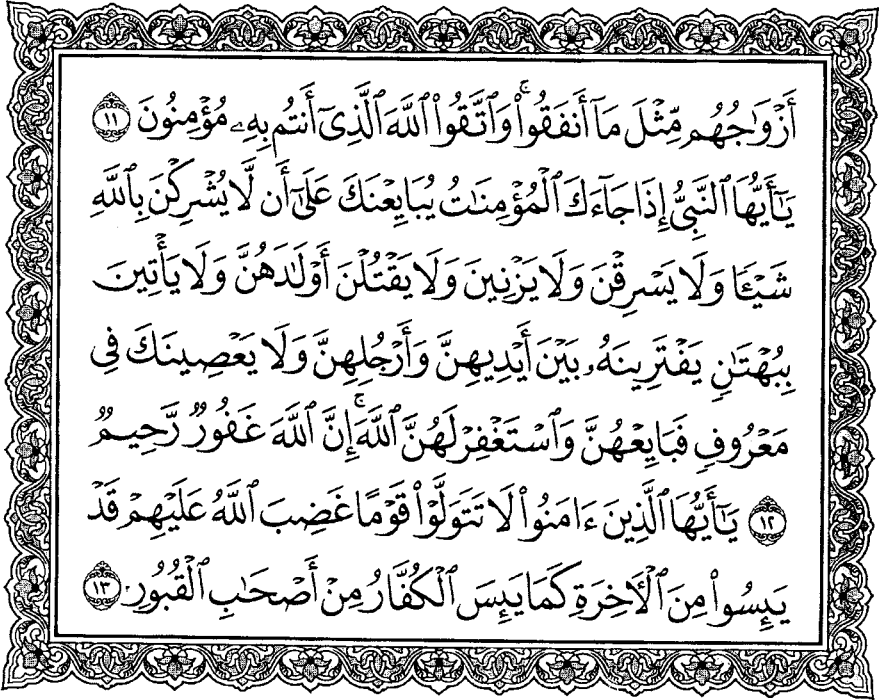 أَزْوَٰجُهُم مِّثْلَ مَآ أَنفَقُوا۟ ۚ وَٱتَّقُوا۟ ٱللَّهَ ٱلَّذِىٓ أَنتُم بِهِۦ مُؤْمِنُونَ ١١
يَـٰٓأَيُّهَا ٱلنَّبِىُّ إِذَا جَآءَكَ ٱلْمُؤْمِنَـٰتُ يُبَايِعْنَكَ عَلَىٰٓ أَن لَّا يُشْرِكْنَ بِٱللَّهِ
شَيْـًٔا وَلَا يَسْرِقْنَ وَلَا يَزْنِينَ وَلَا يَقْتُلْنَ أَوْلَـٰدَهُنَّ وَلَا يَأْتِينَ
بِبُهْتَـٰنٍ يَفْتَرِينَهُۥ بَيْنَ أَيْدِيهِنَّ وَأَرْجُلِهِنَّ وَلَا يَعْصِينَكَ فِى
مَعْرُوفٍ فَبَايِعْهُنَّ وَٱسْتَغْفِرْ لَهُنَّ ٱللَّهَ ۚ إِنَّ ٱللَّهَ غَفُورٌ رَّحِيمٌ
١٢ يَـٰٓأَيُّهَا ٱلَّذِينَ ءَامَنُوا۟ لَا تَتَوَلَّوْا۟ قَوْمًا غَضِبَ ٱللَّهُ عَلَيْهِمْ قَدْ
يَئِسُوا۟ مِنَ ٱلْـَٔاخِرَةِ كَمَا يَئِسَ ٱلْكُفَّارُ مِنْ أَصْحَـٰبِ ٱلْقُبُورِ ١٣